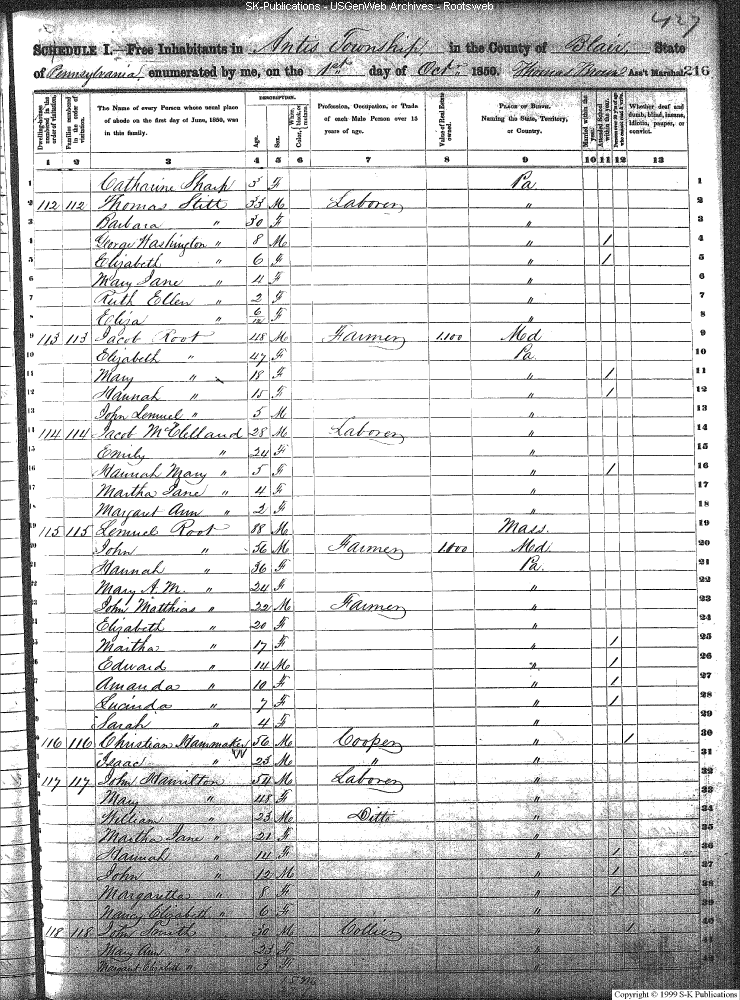 SK-Publications - USGenWeb Archives - Rootsweb
427
SCHEDULE I.—Free Inhabitants in Antis Township in the County of Blair State
of Pennsylvania enumerated by me, on the 1st day of Octr 1850. Thomas Ass't Marshal 216
Dwelling-houses numbered in the order of visitation. Families numbered in the order of visitation. The Name of every Person whose usual place of abode on the first day of June, 1850, was in this family. DESCRIPTION. Age. Sex. Color, White, black, or mulatto. Profession, Occupation, or Trade of each Male Person over 15 years of age. Value of Real Estate owned. PLACE OF BIRTH. Naming the State, Territory, or Country. Married within the year. Attended School within the year. Persons over 20 y'rs of age who cannot read & write. Whether deaf and dumb, blind, insane, idiotic, pauper, or convict.
1 2 3 4 5 6 7 8 9 10 11 12 13
1 Catharine Sharp 3 F Pa. 1
2 112 112 Thomas Stitt 33 M Laborer " 2
3 Barbara " 30 F " 3
4 George Washington " 8 M " / 4
5 Elizabeth " 6 F " / 5
6 Mary Jane " 4 F " 6
7 Ruth Ellen " 2 F " 7
8 Eliza " 6/12 F " 8
9 113 113 Jacob Root 48 M Farmer 1.100 Md 9
10 Elizabeth " 47 F Pa. 10
11 Mary " 18 F " / 11
12 Hannah " 15 F " / 12
13 John Lemuel " 5 M " 13
14 114 114 Jacob McClelland 28 M Laborer " 14
15 Emily " 24 F " 15
16 Hannah Mary " 5 F " / 16
17 Martha Jane " 4 F " 17
18 Margaret Ann " 2 F " 18
19 115 115 Lemuel Root 88 M Mass. 19
20 John " 56 M Farmer 1.000 Md. 20
21 Hannah " 36 F Pa. 21
22 Mary A. M. " 24 F " 22
23 John Matthias " 22 M Farmer " 23
24 Elizabeth " 20 F " 24
25 Martha " 17 F " / 25
26 Edward " 14 M " / 26
27 Amanda " 10 F " / 27
28 Lucinda " 7 F " / 28
29 Sarah " 4 F " 29
30 116 116 Christian Hammaker 56 M Cooper " / 30
31 W Isaac " 23 M " " 31
32 117 117 John Hamilton 54 M Laborer " 32
33 Mary " 48 F " 33
34 William " 23 M Ditto " 34
35 Martha Jane " 21 F " 35
36 Hannah " 14 F " / 36
37 John " 12 M " / 37
38 Margaretta " 8 F " / 38
39 Nancy Elizabeth " 6 F " 39
40 118 118 John Smith 30 M Collier " / 40
41 Mary Ann " 23 F " 41
42 Margaret Elizabeth " 3 F " 42
Copyright © 1999 S-K Publications